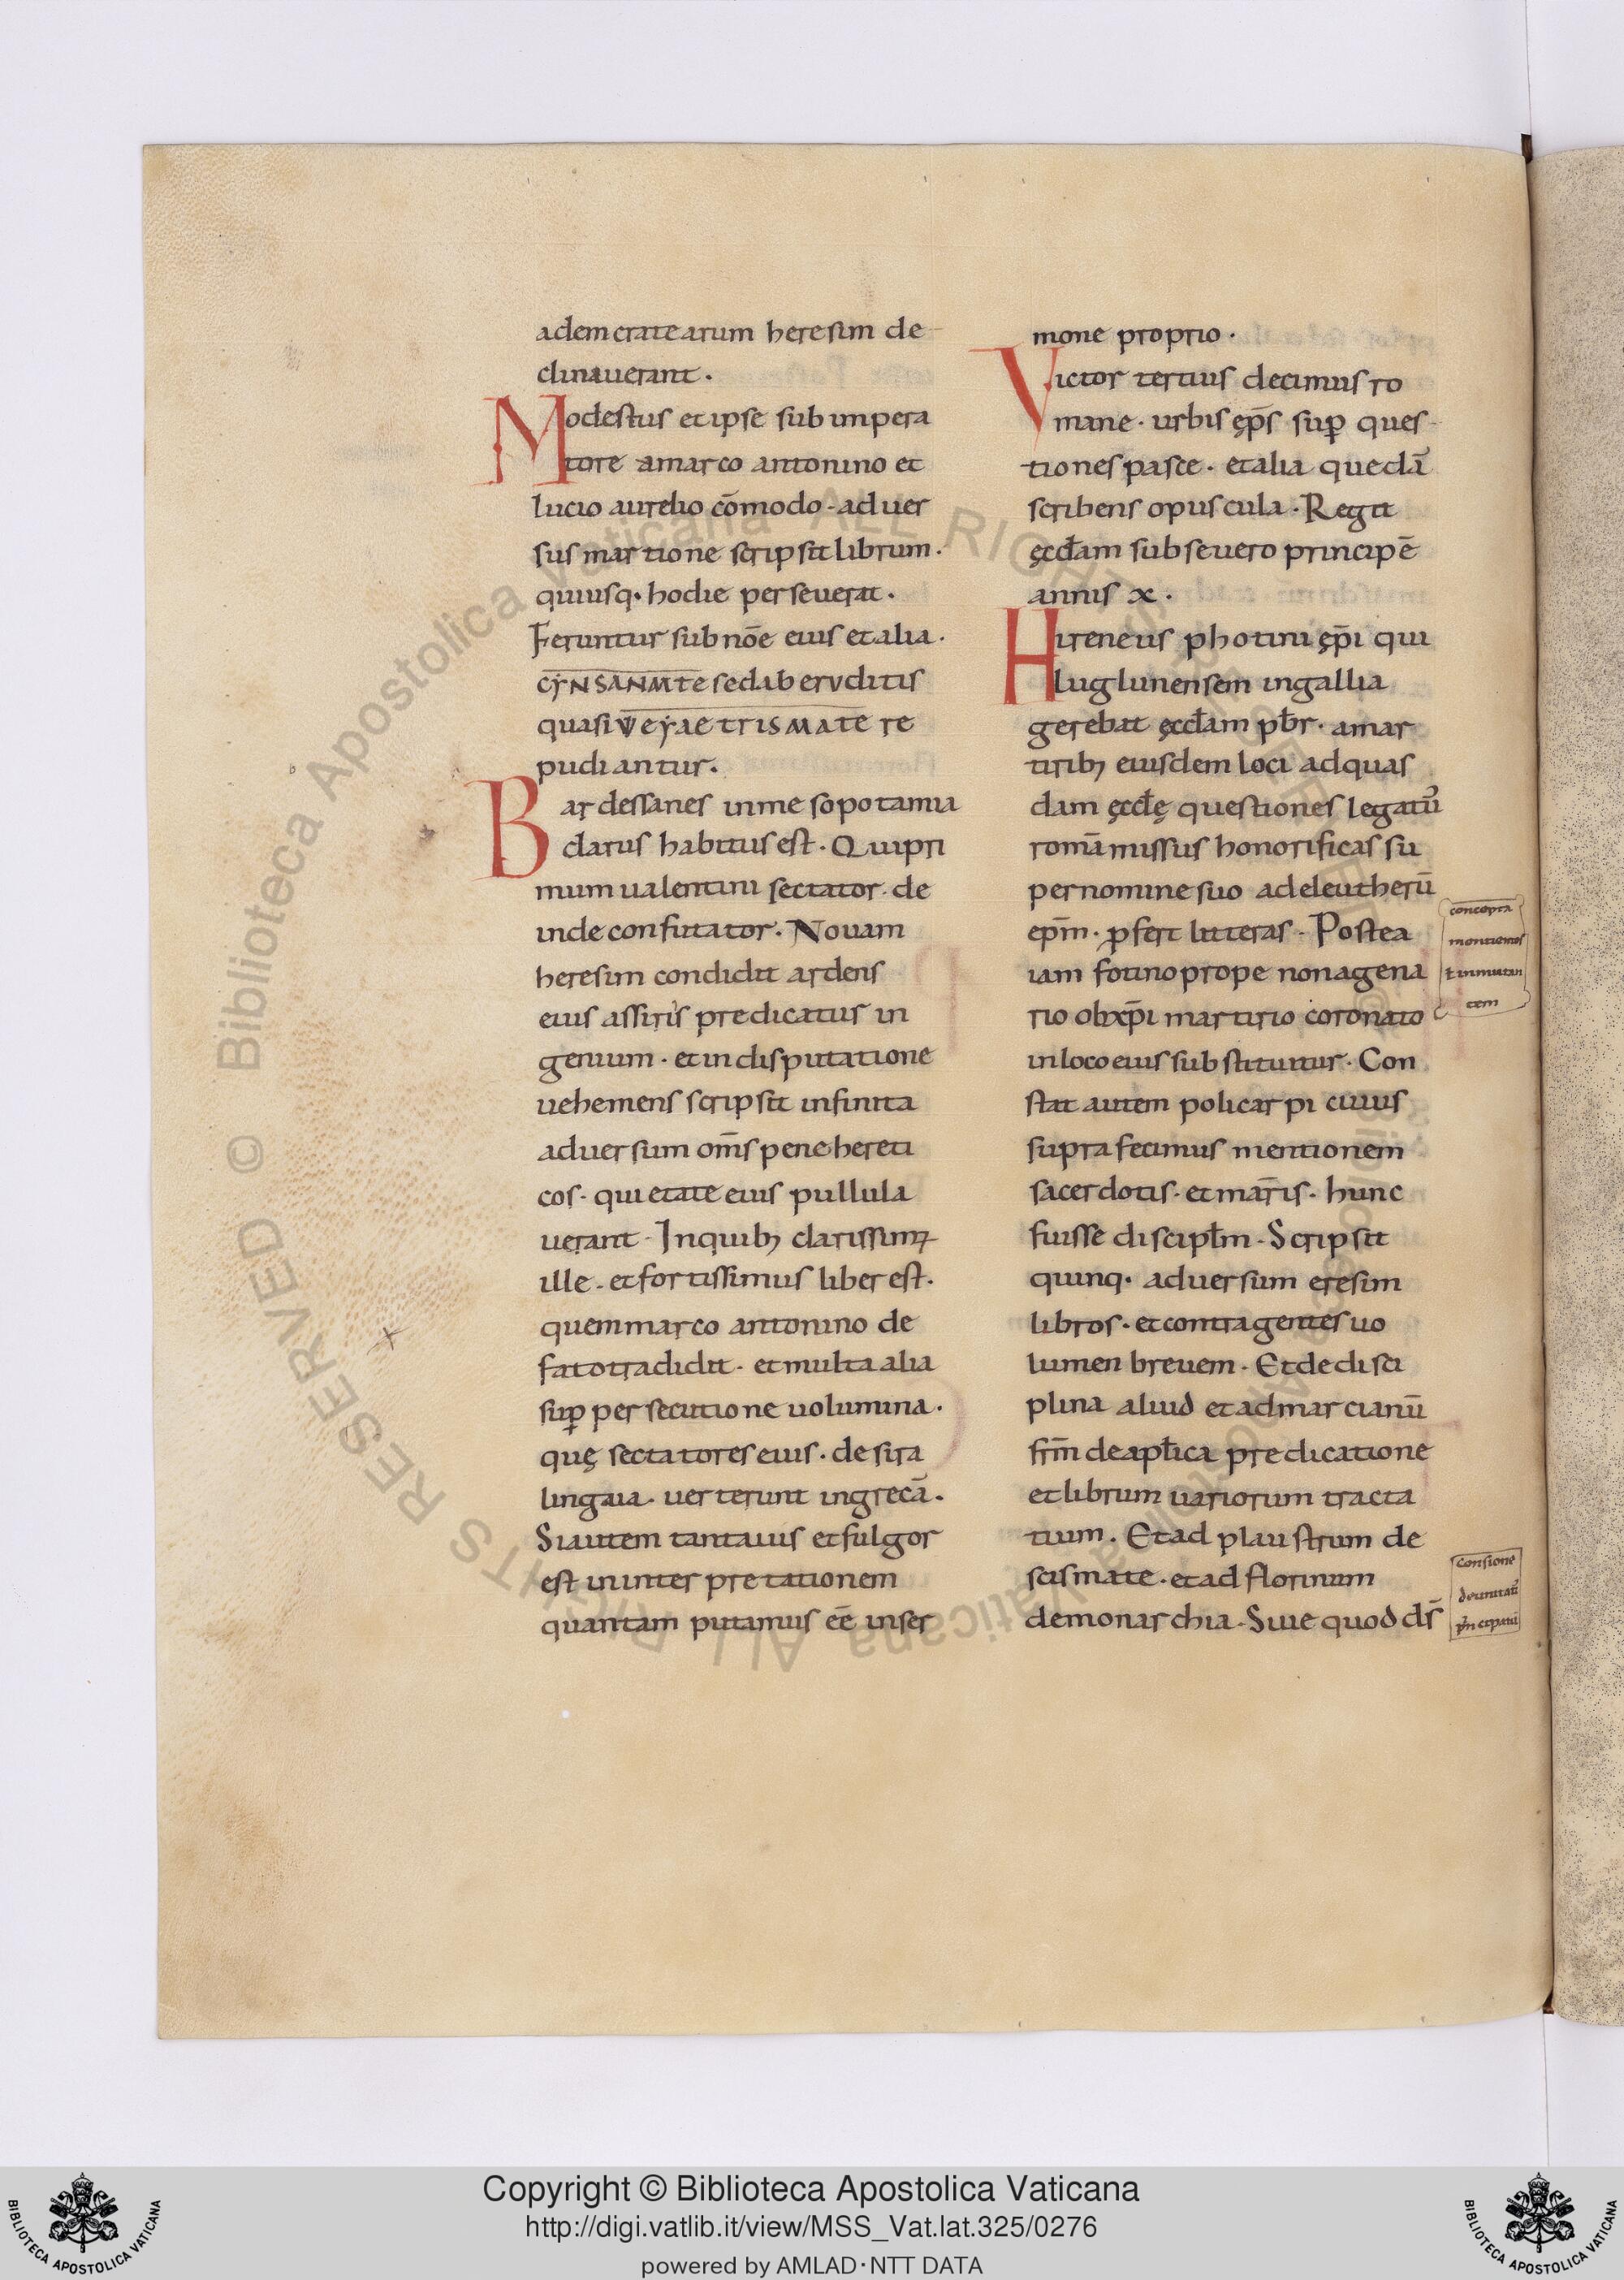 ademcratearum heresim de
clinauerant.
Modestus et ipse sub impera
tore amarco antonino et
lucio aurelio cōmodo. aduer
sus martione scripsit librum.
quiusq. hodie perseuerat.
Feruntur sub nōe eius et alia.
sed ab eruditis
quasi re
pudiantur.
Bardessanes in mesopotamia
clarus habitus est. Qui pri
mum ualentini sectator. de
inde confutator. Nouam
heresim condidit ardens
eius assiris predicatus in
genium. et in disputatione
uehemens scripsit infinita
aduersum om̄s pene hereti
cos. qui etate eius pullula
uerant. Inquibȝ clarissimꝰ
ille. et fortissimus liber est.
quem marco antonino de
fato tradidit. et multa alia
sup̄ persecutione uolumina.
quę sectatores eius. de sira
lingaia. uerterunt in grecā.
Si autem tanta uis et fulgor
est in inter pretationem
quantam putamus eē in ser
mone proprio.
Victor tertius decimus ro
mane. urbis ęp̄s sup̄ ques
tiones pasce. et alia quedā
scribens opuscula. Regit
ęccłam sub seuero principē
annis x.
Hireneus photini ęp̄i qui
luglunensem in gallia
gerebat ęccłam pb̄r. amar
tiribȝ eiusdem loci ad quas
dam ęccłę questiones legatū
romā missus honorificas su
per nomine suo ad eleutherū
ep̄m. ꝓfert litteras. Postea
iam fotino prope nonagena
rio ob xp̄i martirio coronato
in loco eius substituitur. Con
stat autem policarpi cuius
supra fecimus mentionem
sacerdotis. et mar̄ris. hunc
fuisse discipłm. Scripsit
quinq. aduersum eresim
libros. et contra gentes uo
lumen breuem. Et de disci
plina aliud et ad marcianū
fr̄m de apłica predicatione
et librum uariorum tracta
tuum. Et ad plaustrum de
scismate. et ad florinum
de monarchia. Siue quod d̄s